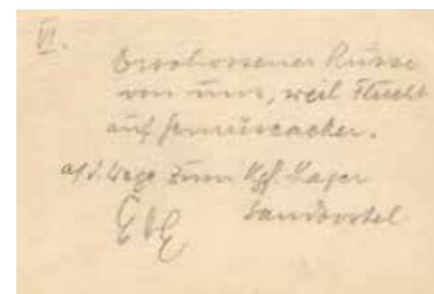 VI.
Erschossener Russe
von uns, weil Flucht
auf Gemüseacker.
a/d Wege zum Kgf. Lager
Sandbostel